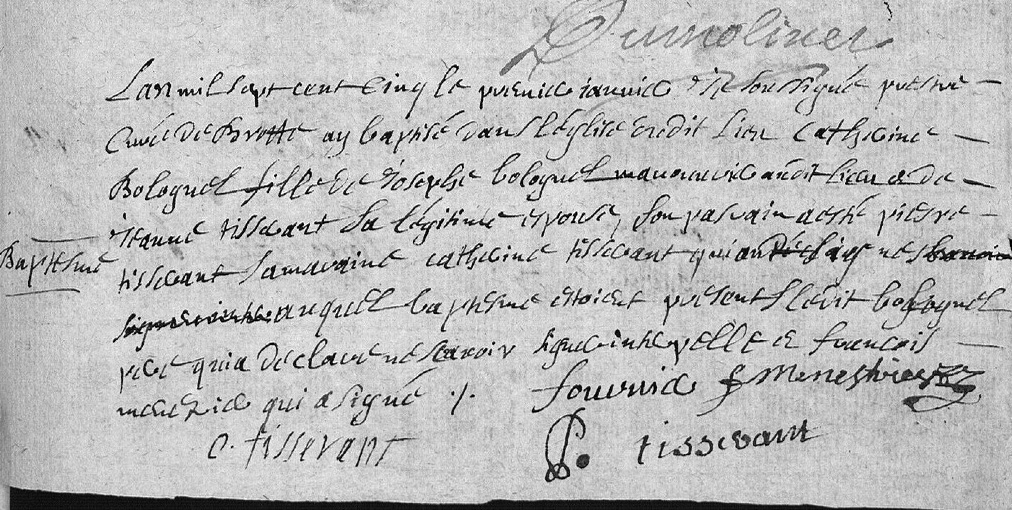 Dumolinet
Lan mil sept cent cinq le premier janvier Je soussigné prestre
Curé de Brotte ay baptisé dans l'église dudit lieu Catherine
Bolognel fille de Joseph bolognel manouvrier audit lieu et de
Jeanne tisserant sa légitime espouse, son parain a esté pierre
Baptesme
tisserant sa maraine catherine tisserant qui
auquel baptesme estoient présent ledit bolognel
père qui a déclaré ne scavoir signer interpellé et francois
menetrier qui a signé ./.
fournier f Menestrier
c. tisserant
P. tisserant